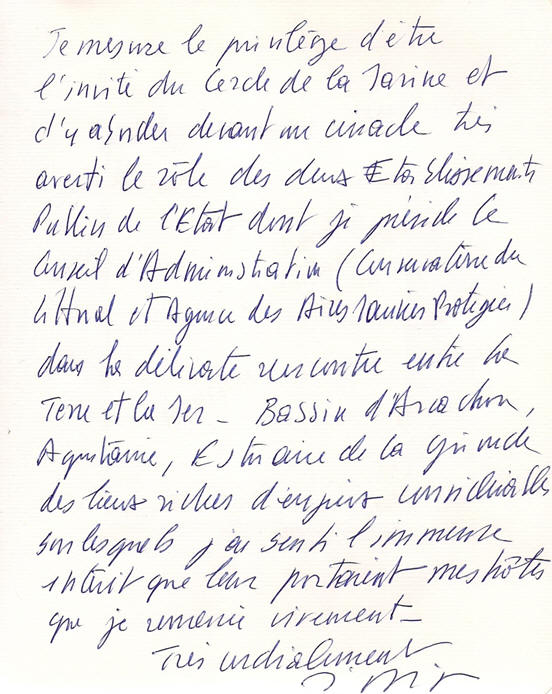 Je mesure le privilège d'être
l'invité du Cercle de la Marine et
d'y aborder devant un cénacle très
averti le rôle des deux Etablissements
Publics de l'Etat dont je préside le
Conseil d'Administration (Conservatoire du
littoral et Agence des Aires Marines Protégées)
dans la délicate rencontre entre la
Terre et la Mer - Bassin d'Arcachon,
Aquitaine, Estuaire de la Gironde
des lieux riches d'enjeux considérables
sur lesquels j'ai senti l'immense
intérêt que leur portaient mes hôtes
que je remercie vivement -
Très cordialement